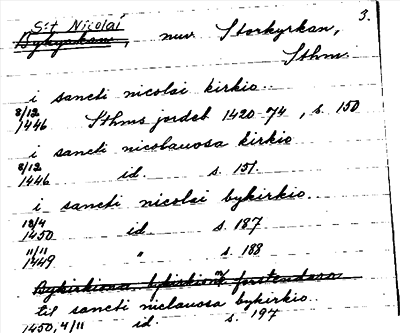 3.
S:t Nicolai
Bykyrkan, nuv. Storkyrkan,
Sthm.
i sancti nicolai kirkio..
8/12
1446 Sthms jordeb 1420-74, s. 150
i sancti nicolauosa kirkio
8/12
1446 id. s. 151.
i sancti nicolai bykirkio.
13/4
1450 id s. 187
11/11
1449 " s. 188
Bykirkiona, bykirkion
til sancti niclauosa bykirkio..
1450, 4/11 id. s. 197